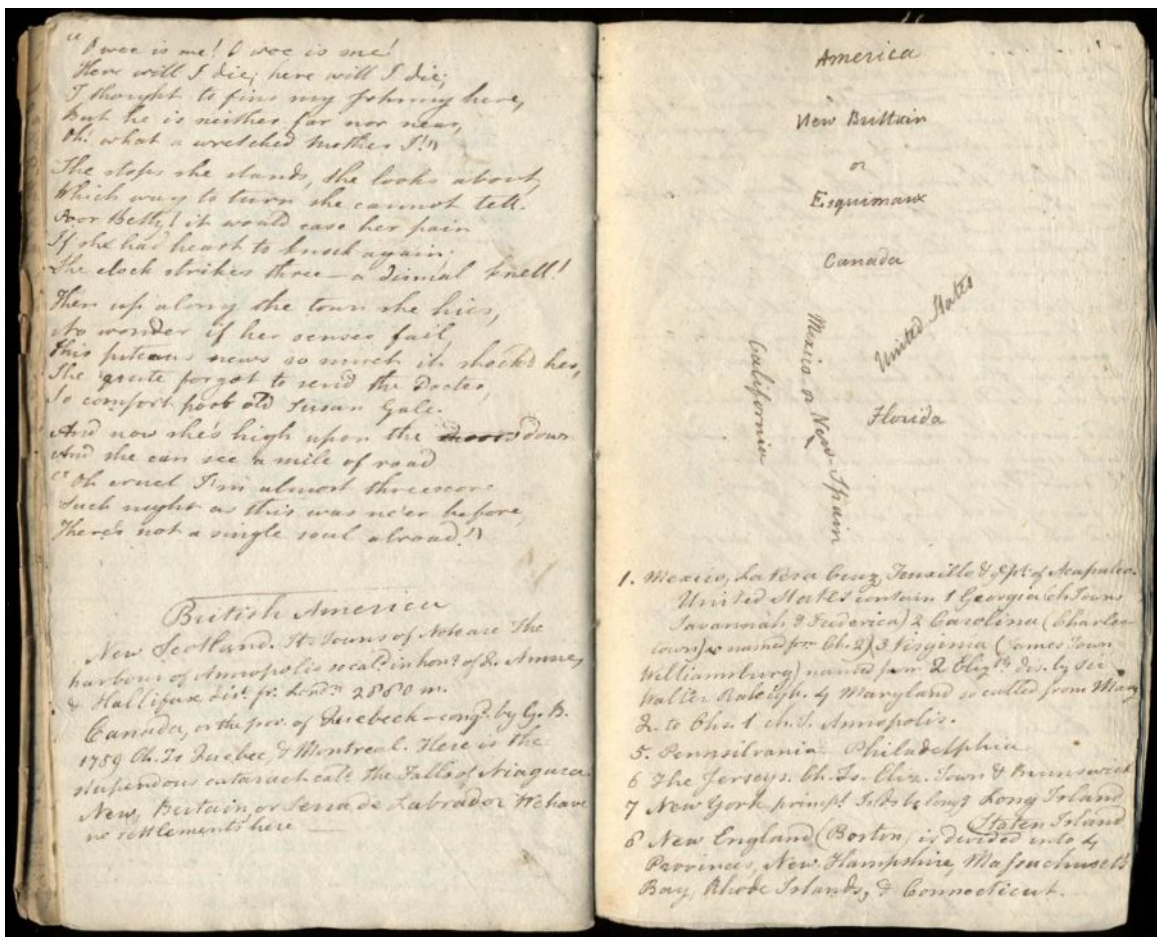 "O woe is me! O woe is me!
Here will I die; here will I die;
I thought to find my Johnny here,
But he is neither far nor near,
Oh! what a wretched Mother I!"
She stops she stands, she looks about,
Which way to turn she cannot tell.
Poor Betty! it would ease her pain
If she had heart to knock again;
The clock strikes three — a dismal knell!
Then up along the town she hies,
No wonder if her senses fail,
This piteous news so much it shock'd her,
She quite forgot to send the Doctor,
To comfort poor old Susan Gale.
And now she's high upon the down
And she can see a mile of road
"Oh cruel I'm almost threescore
Such night as this was ne'er before,
There's not a single soul abroad!"
British America
New Scotland. Its Towns of Note are The
harbour of Annopolis so cald in honr of Q. Anne,
& Hallifax dist. fr. Londn 2880 m.
Canada, or the prov. of Quebeck — conqd. by G. B.
1759 Ch. Ts Quebec, & Montreal. Here is the
stupendous cataract cald the Falls of Niagara.
New, Britain, or Terra de Labrador We have
no settlements here
America
New Brittain
or
Esquimaux
Canada
United States
Mexico or New-Spain
California
Florida
1. Mexico, La Vera Cruz, Truxillo & of Acapulco.
United States contain 1 Georgia (ch Towns
Savannah & Frederica) 2 Carolina (Charles-
town) so named from Ch. 2) 3 Virginia (James Town
Williamsburg) named from Q Elizth. dis. by Sir
Walter Raleigh. 4 Maryland so called from Mary
Q. to Cha. 1 ch. T. Annopolis.
5. Pennsilvania Philadelphia
6 The Jerseys. Ch. Ts. Eliz. Town & Brunswick
7 New York Long Island
Staten Island
8 New England (Boston) is divided into 4
Provinces, New Hampshire, Massachusets
Bay, Rhode Islands, & Connecticut.